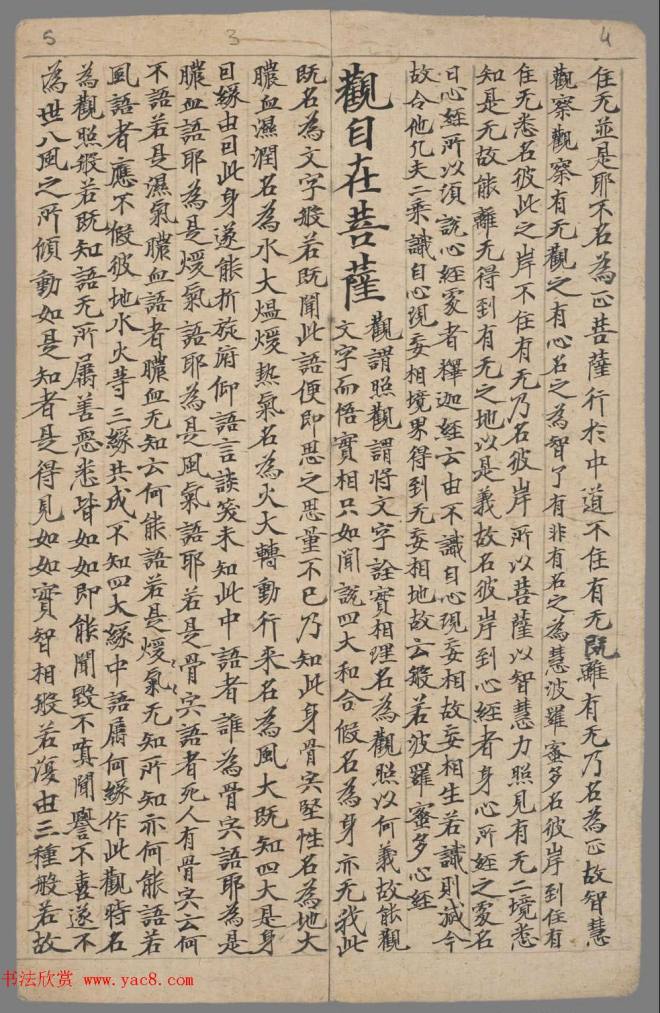 5
3
4
住无並是耶不名為正菩薩行於中道不住有无既離有无乃名為正故智慧
觀察觀察有无觀之有心名之為智了有非有名之為慧波羅蜜多名彼岸到住有
住无悉名彼此之岸不住有无乃名彼岸所以菩薩以智慧力照見有无二境悉
知是无故能離无得到有无之地以是義故名彼岸到心經者身心所經之處名
曰心經所以須說心經處者釋迦經云由不識自心現妄相故妄相生若識則滅今
故令他凡夫二乘識自心現妄相境界得到无妄相地故云般若波羅蜜多心經
觀自在菩薩
觀謂照觀謂將文字詮實相理名為觀照以何義故能觀
文字而悟實相只如聞說四大和合假名為身亦无我此
既名為文字般若既聞此語便即思之思量不已乃知此身骨宍堅性名為地大
膿血濕潤名為水大熅煖熱氣名為火大轉動行来名為風大既知四大是身
因緣由因此身遂能折旋府仰語言談笑未知此中語者誰為骨宍語耶為是
膿血語耶為是煖氣語耶為是風氣語耶若是骨宍語者死人有骨宍云何
不語若是濕氣膿血語者膿血无知云何能語若是煖氣无知所知亦何能語若
風語者應不假彼地水火等三緣共成不知四大緣中語屬何緣作此觀時名
為觀照般若既知語无所屬善惡悉皆如如即能聞毀不嗔聞譽不喜遂不
為世八風之所傾動如是知者是得見如如實智相般若復由三種般若故
书法欣赏 www.yac8.com